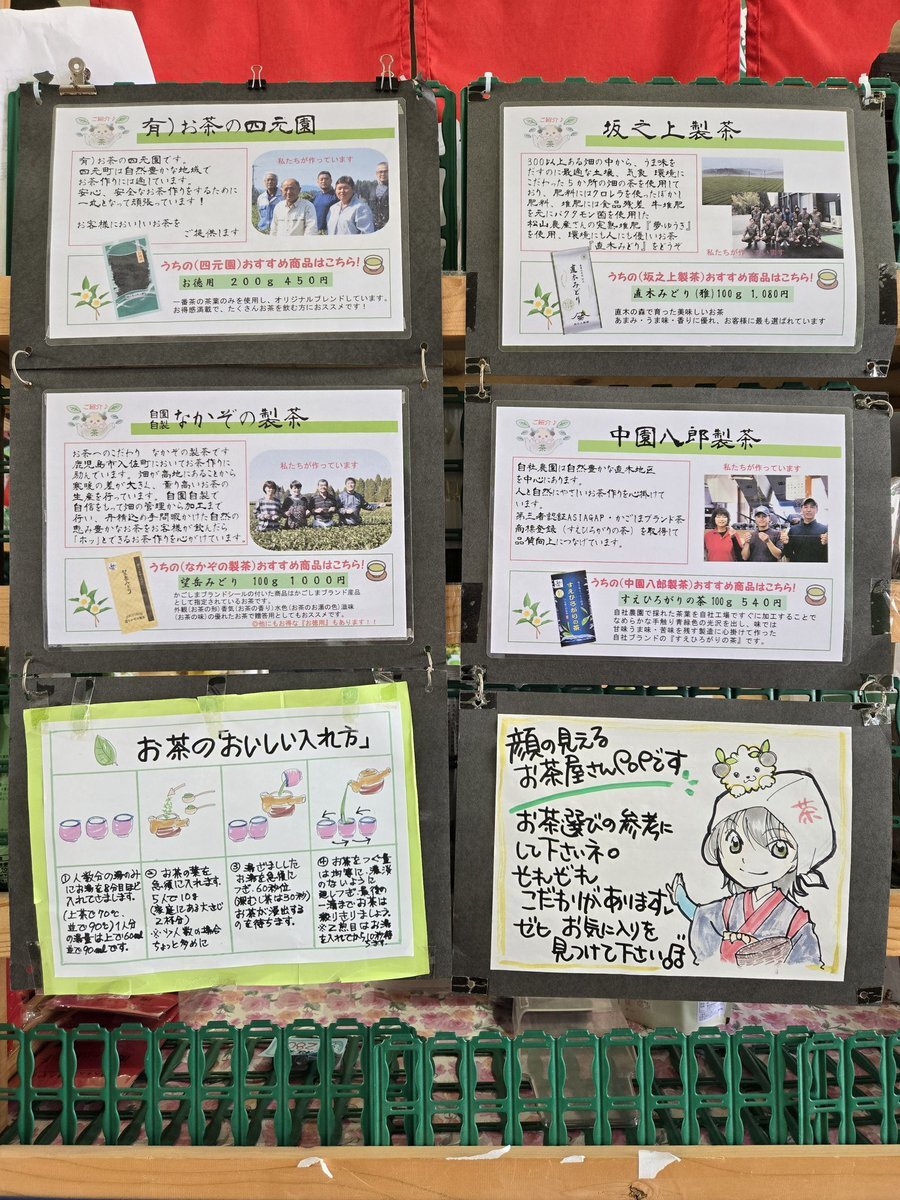 ご紹介♪
茶
有)お茶の四元園
有)お茶の四元園です。
四元町は自然豊かな地域で
お茶作りには適しています。
安心、安全なお茶作りをするために
一丸となって頑張っています!
お客様においしいお茶を
ご提供します
私たちが作っています
うちの(四元園)おすすめ商品はこちら!
お徳用 200g 450円
一番茶の茶葉のみを使用し、オリジナルブレンドしています。
お得感満載で、たくさんお茶を飲む方におススメです!
ご紹介♪
茶
坂之上製茶
300以上ある畑の中から、うま味を
だすのに最適な土壌、気象、環境に
こだわった5か所の畑の茶を使用して
おり、肥料にはクロレラを使ったぼかし
肥料、堆肥には食品残渣、牛堆肥
を元にバクタモン菌を使用した
松山農産さんの完熟堆肥『夢ゆうき』
を使用、環境にも人にも優しいお茶
『直木みどり』をどうぞ
私たちが作っています
うちの(坂之上製茶)おすすめ商品はこちら!
直木みどり
直木みどり(雅)100g 1,080円
直木の森で育った美味しいお茶
あまみ・うま味・香りに優れ、お客様に最も選ばれています
ご紹介♪
茶
自園
自製 なかぞの製茶
お茶へのこだわり なかぞの製茶です
鹿児島市入佐町においてお茶作りに
励んでいます。畑が高地にあることから
寒暖の差が大きく、香り高いお茶の
生産を行っています。自園自製で
自信をもって畑の管理から加工まで
行い、丹精込め手間暇かけた自然の
恵み豊かなお茶をお客様が飲んだら
「ホッ」とできるお茶作りを心がけています。
私たちが作っています
うちの(なかぞの製茶)おすすめ商品はこちら!
望岳みどり
望岳みどり 100g 1000円
かごしまブランドシールの付いた商品はかごしまブランド産品
として指定されているお茶です。
外観(お茶の形)香気(お茶の香り)水色(お茶のお湯の色)滋味
(お茶の味)の優れたお茶で贈答用としてもおススメです。
◎他にもお得な『お徳用』もあります!!
ご紹介♪
茶
中園八郎製茶
自社農園は自然豊かな直木地区
を中心にあります。
人と自然にやさしいお茶作りを心掛けて
います。
第三者認証ASIAGAP・かごしまブランド茶
商標登録(すえひろがりの茶)を取得して
品質向上につなげています。
私たちが作っています
うちの(中園八郎製茶)おすすめ商品はこちら!
すえひろがりの茶
すえひろがりの茶100g 540円
自社農園で採れた茶葉を自社工場ですぐに加工することで
なめらかな手触り青緑色の光沢を出し、味では
甘味うま味・苦味を残す製造に心掛けて作った
自社ブランドの『すえひろがりの茶』です。
お茶の「おいしい入れ方」
①人数分の湯のみ
にお湯を8分目ほど
入れてさまします。
(上茶で70℃、
並で90℃)1人分
の湯量は上で60ml
並で90mlです。
② お茶の葉を
急須に入れます。
5人で10g
(家庭にある大さじ
2杯分)
※少人数の場合
ちょっと多めに
③ 湯ざまししした
お湯を急須に
つぎ、60秒位
(深むし茶は30秒)
お茶が浸出する
のを待ちます。
④ お茶をつぐ量
は均等に、濃淡
のないように
廻しつぎ、最後の
一滴までお茶は
絞りきりましょう。
※2煎目はお湯
を入れてから10秒待
ちます。
顔の見える
お茶屋さんPOPです
お茶選びの参考に
して下さいネ。
それぞれ
こだわりがあります
ゼヒ お気に入りを
見つけて下さい
茶